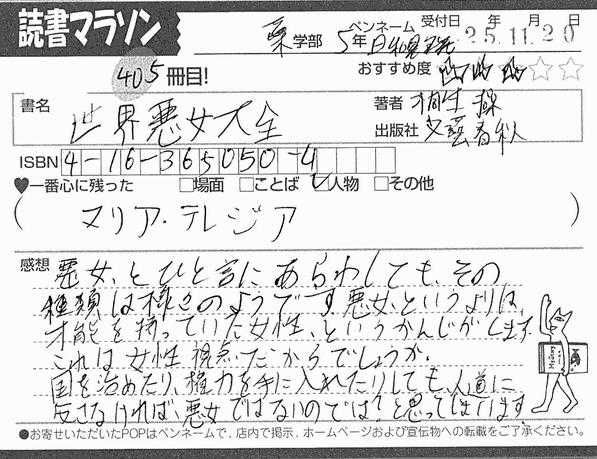 読書マラソン
薬学部 5年 ペンネーム 受付日 年 月 日
25.11.20
405冊目!
おすすめ度 ☆☆☆☆☆
書名 世界悪女大全
著者 桐生 操
出版社 文藝春秋
ISBN 4-16-365050-4
♥一番心に残った □場面 □ことば □人物 □その他
( マリア・テレジア )
感想
悪女、とひと言にあらわしても、その
種類は様々のようです。悪女、というよりは、
才能を持っていた女性、というかんじがします。
これは女性視点だからでしょうか。
国を治めたり、権力を手に入れたりしても、人道に
反さなければ、悪女ではないのでは?と思ってしまいます。
●お寄せいただいたPOPはペンネームで、店内で掲示、ホームページおよび宣伝物への転載をご了承ください。